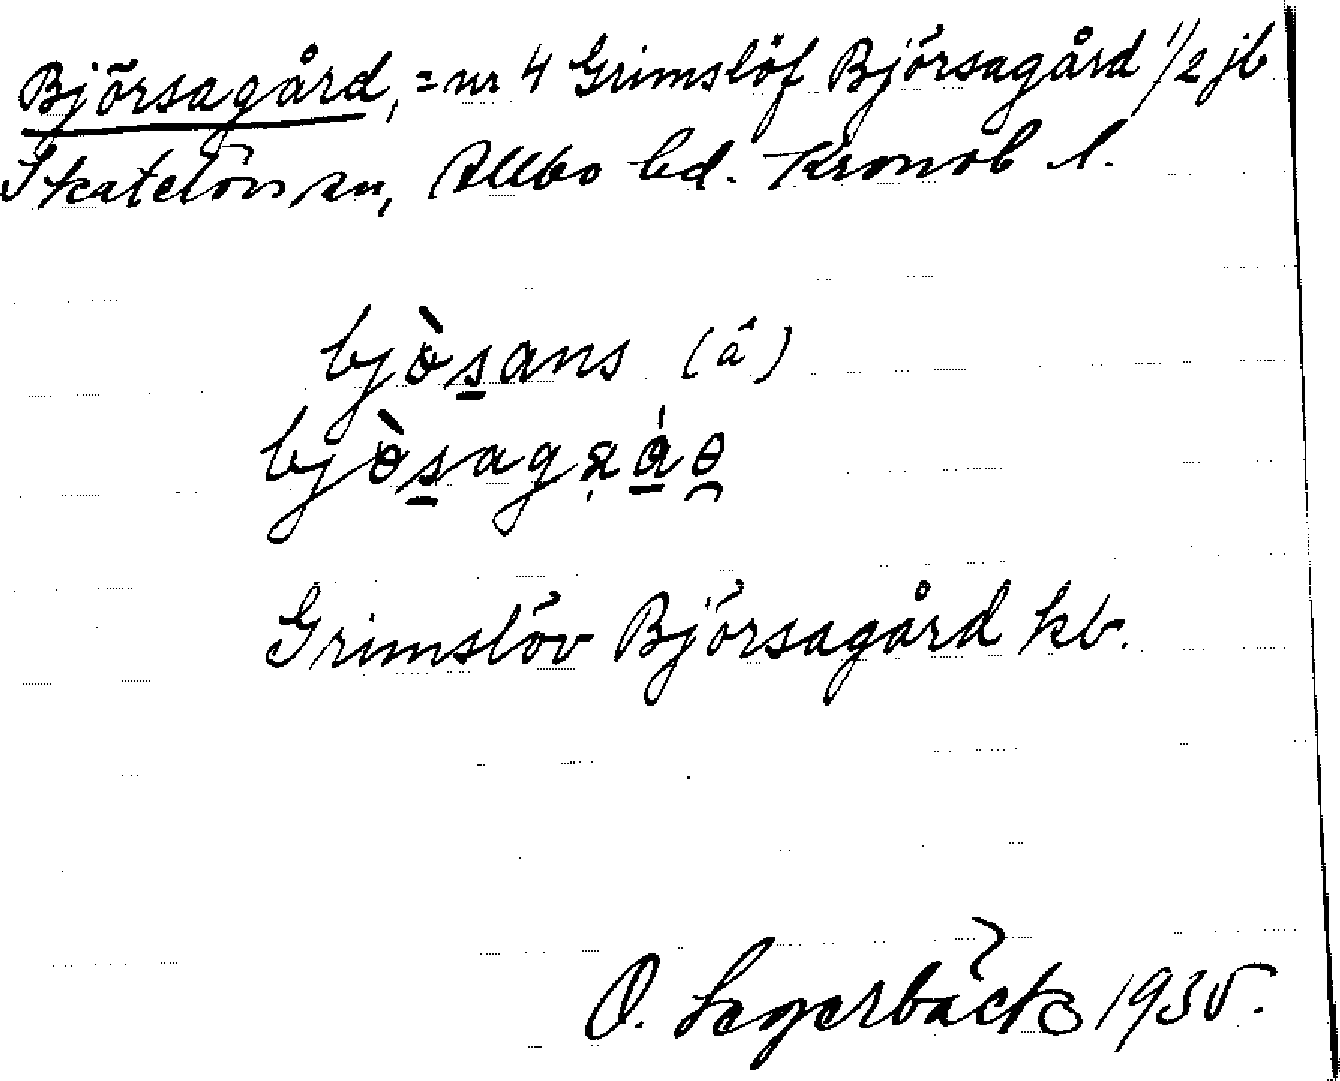 Björsagård, = nr 4 Grimslöf Björsagård 1/2 jb
Skatelöv sn, Allbo hd. Kronob l.
bjòsans (â)
bjɵ̀sagɹáɵ
Grimslöv Björsagård kb.
O. Segerbäck 1935.